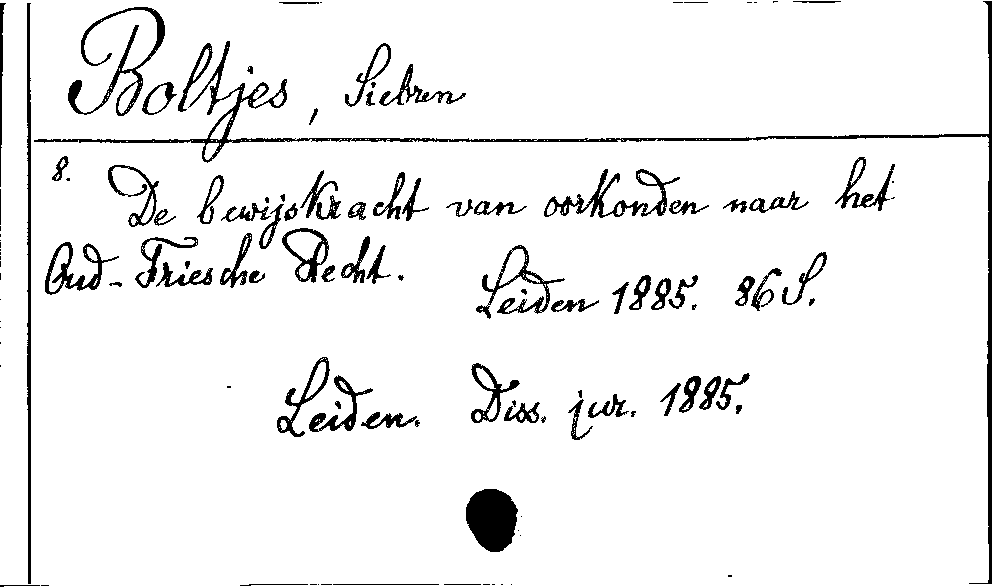 Boltjes, Siebren
8. De bewijskracht van oorkonden naar het
Oud-Friesche Recht.
Leiden 1885. 86 S.
Leiden. Diss. jur. 1885.